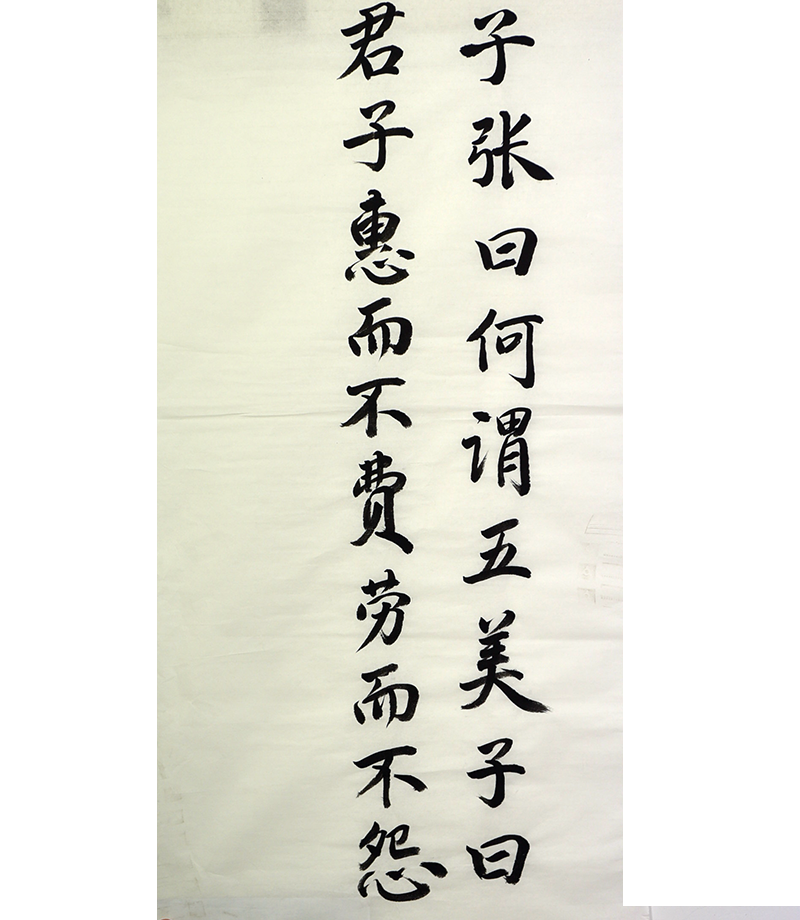 子张曰何谓五美子曰
君子惠而不费劳而不怨